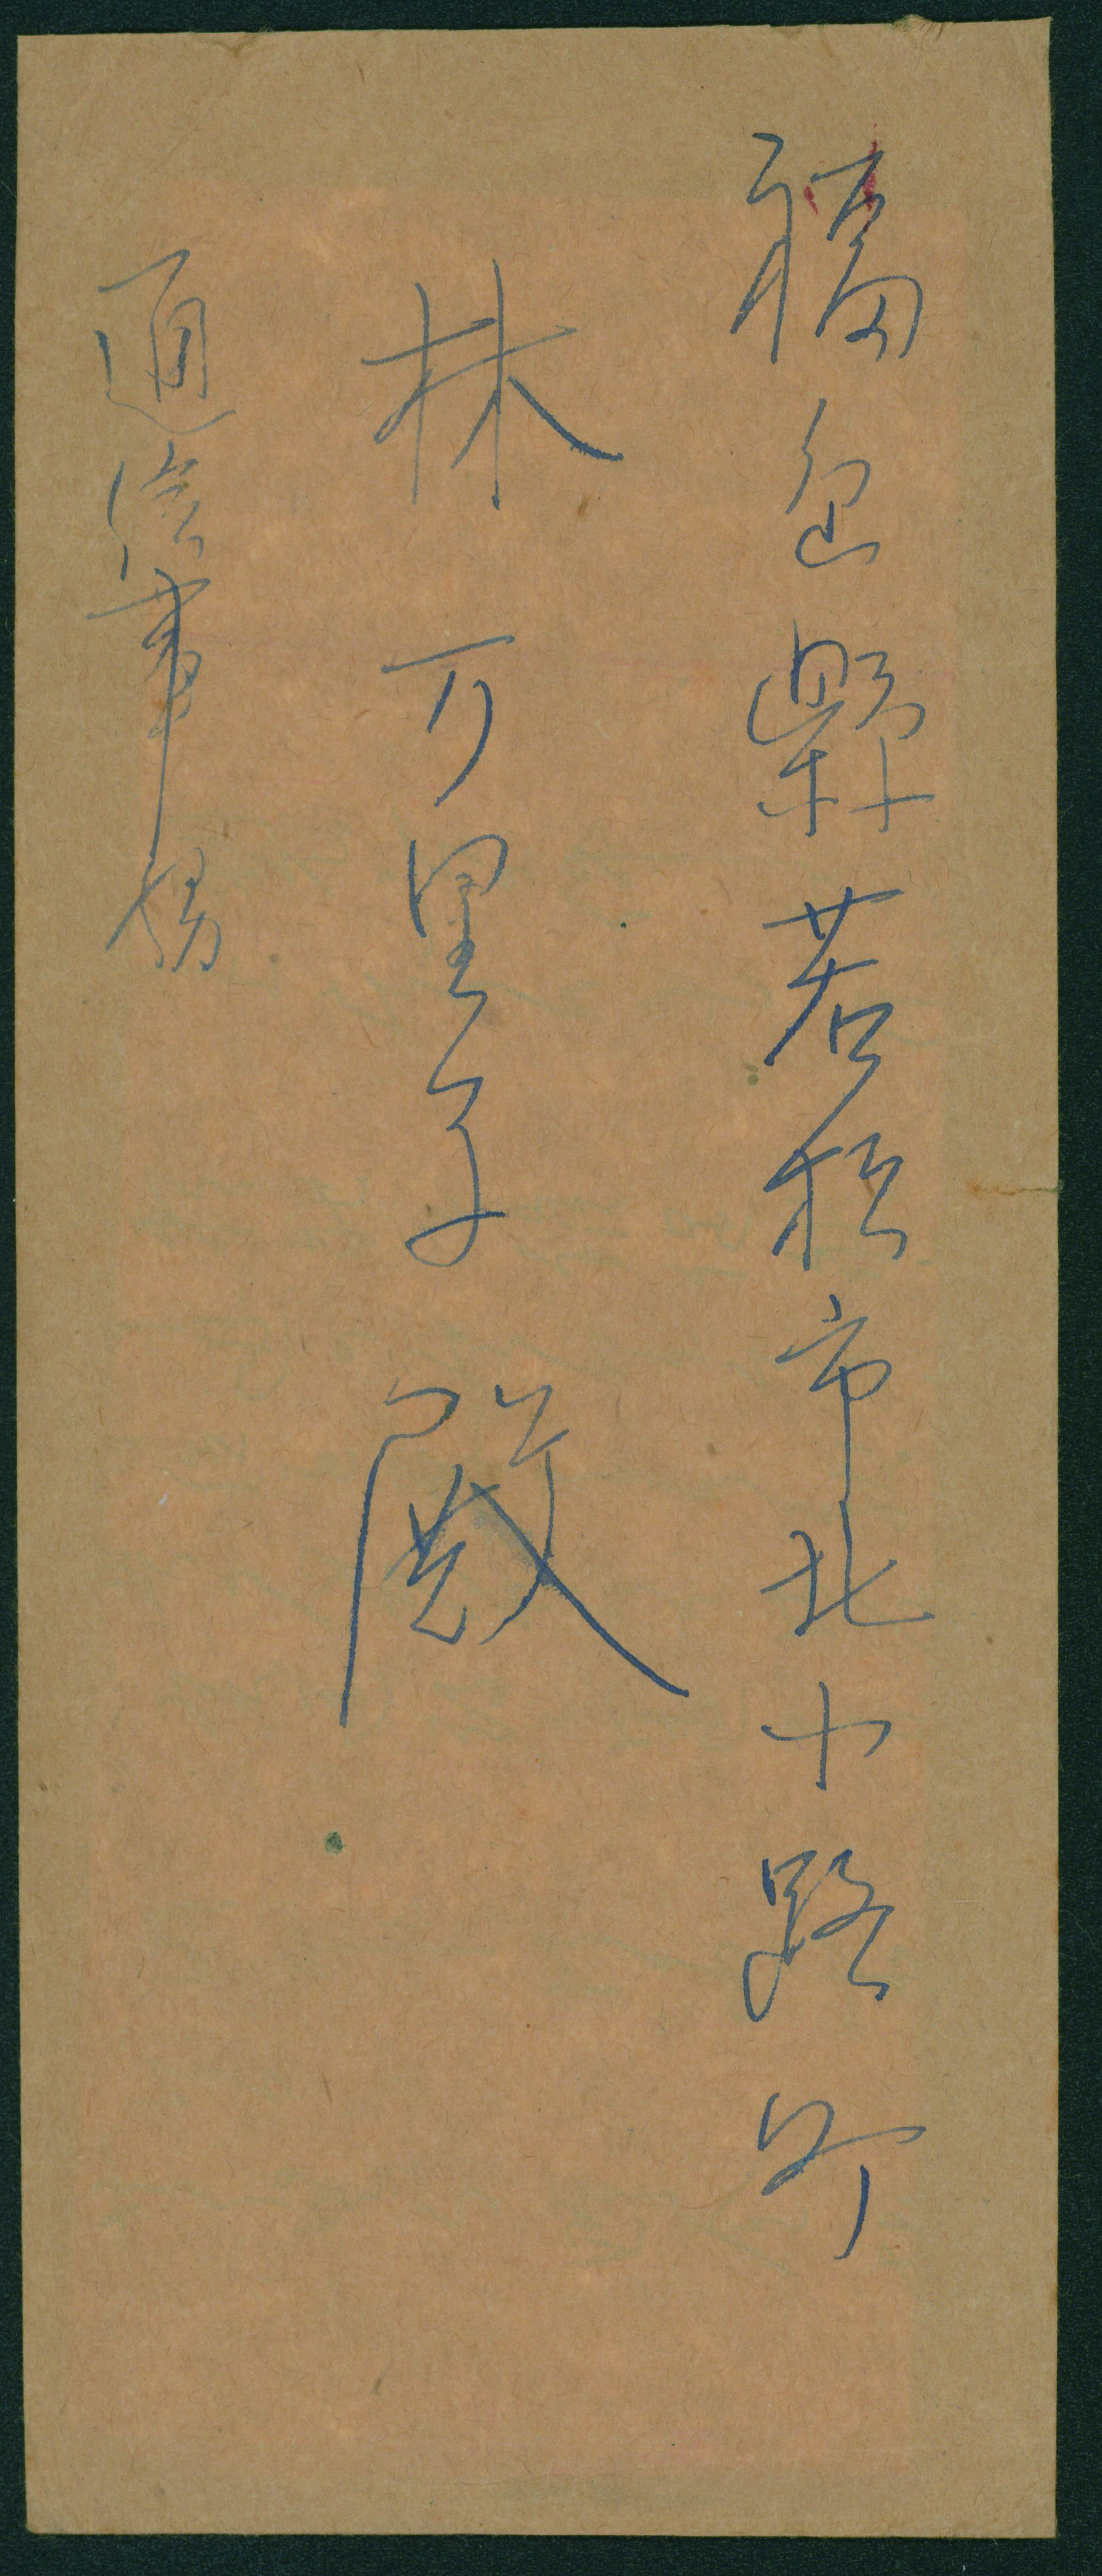 福島縣若松市北小路町
林万里子殿
通信事務